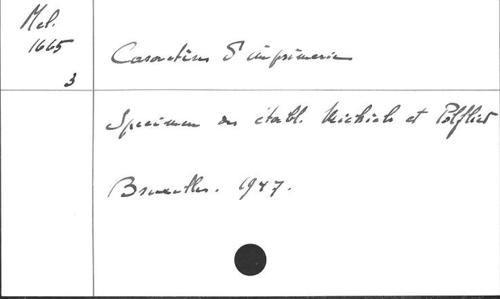 Mel.
1665
3
Caractères d'imprimerie
Specimen des établ. Michiels et Polfliet
Bruxelles. 1947.